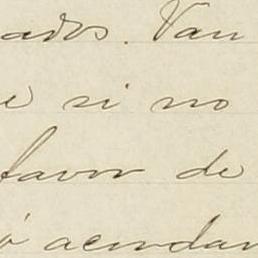 ados. Van
e si no
favor de
ó acordar